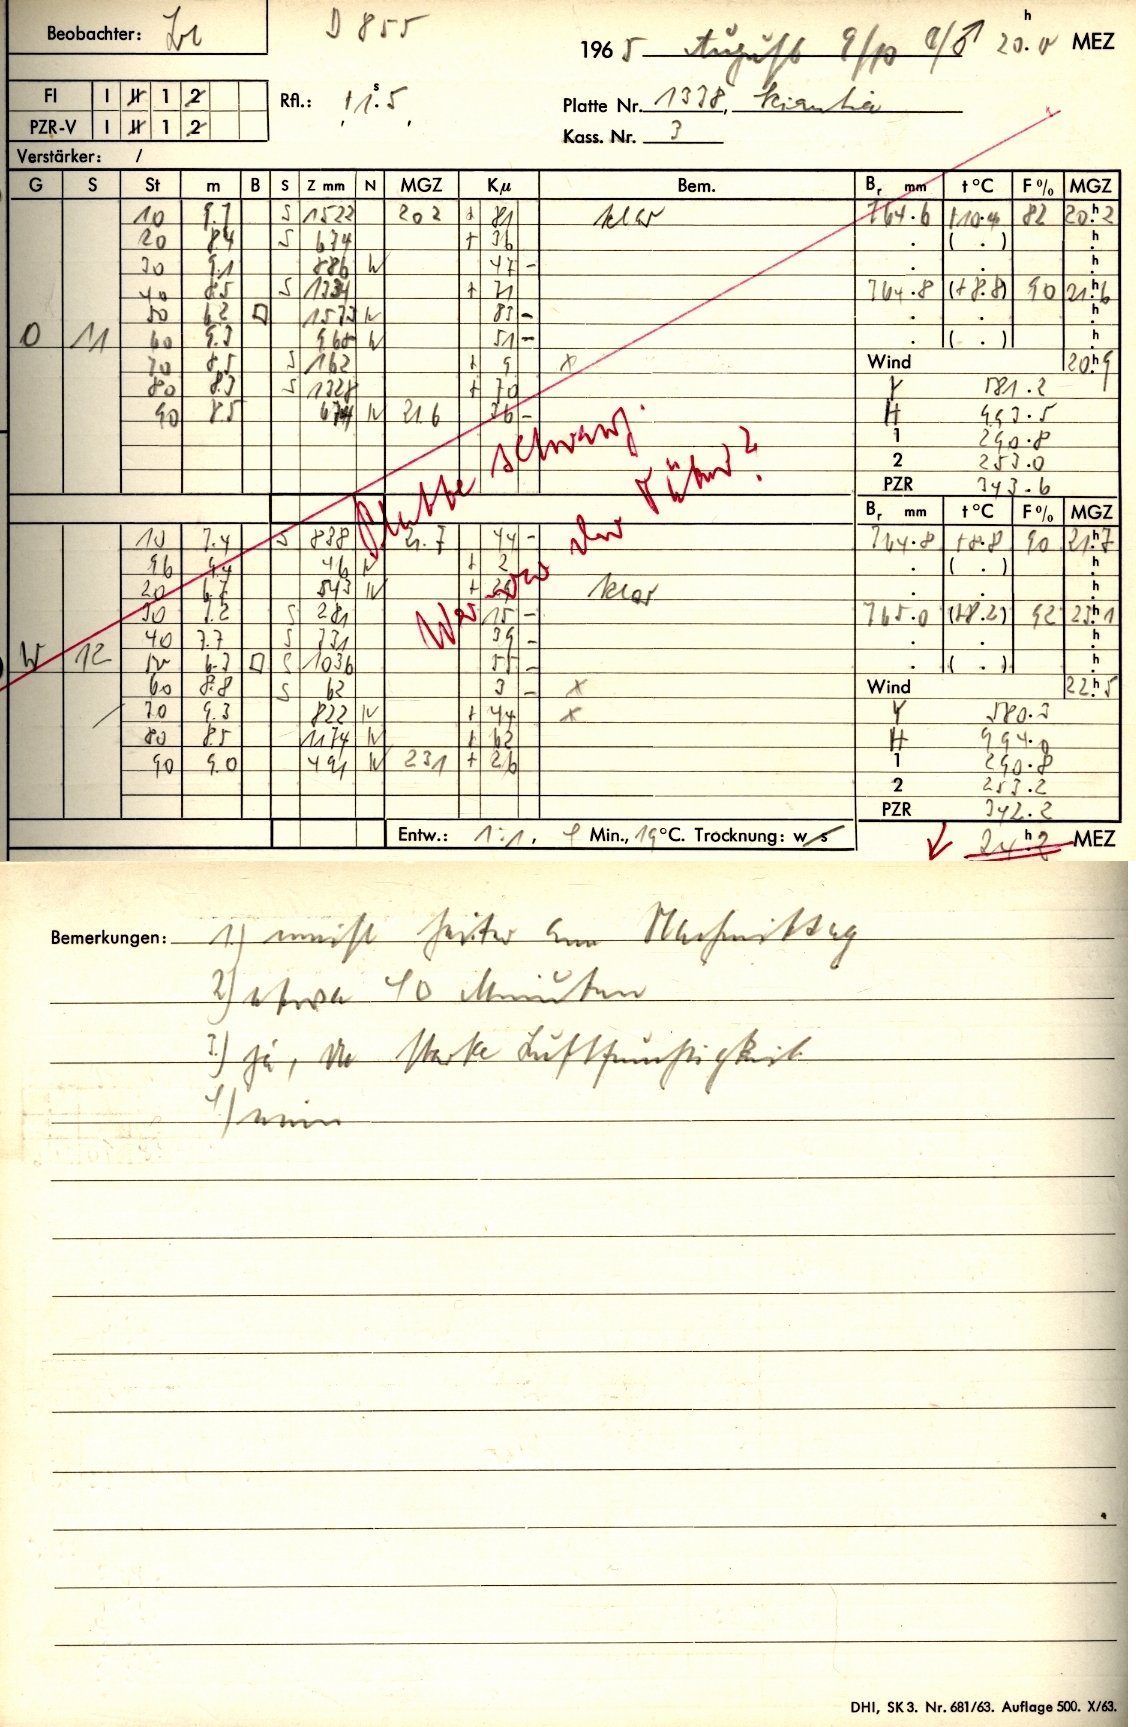 Beobachter:
D 855
1965 August 9/10 20.h0 MEZ
FI I II 1 2
Rfl.: +1.s5
Platte Nr. 1338,
PZR-V I II 1 2
Kass. Nr. 3
Verstärker: /
G S St m B S Z mm N MGZ Kμ Bem. Br mm t °C F % MGZ
10 9.7 S 1522 202 + 81 klar 764.6 +10.4 82 20.h2
20 8.4 S 674 + 36 . ( . ) h
30 9.1 886 N 47 - . . h
40 8.5 S 1334 + 71 764.8 (+8.8) 90 21.h6
50 6.2 □ 1573 N 83 - . . h
O 11 60 9.3 968 N 51 - . ( . ) h
70 8.5 S 162 + 9 x Wind 20.h9
80 8.3 S 1328 + 70 Y 581.2
90 8.5 674 N 21.6 36 - H 993.5
1 290.8
2 253.0
Platte schwarz.
PZR 343.6
Wer war der Täter?
Br mm t °C F % MGZ
10 7.4 S 838 21.7 44 - 764.8 +8.8 90 21.h7
96 9.4 46 N + 2 . ( . ) h
20 6.7 543 N + 29 klar . . h
30 7.2 S 281 15 - 765.0 (+8.2) 92 23.h1
40 7.7 S 731 39 - . . h
W 12 50 6.3 □ S 1036 55 - . ( . ) h
60 8.8 S 62 3 - x Wind 22.h5
70 9.3 822 N + 44 x Y 580.3
80 8.5 1174 N + 62 H 994.0
90 9.0 491 N 231 + 26 1 290.8
2 253.2
PZR 342.2
Entw.: 1:1, 4 Min., 19°C. Trocknung: w/s 24.h2 MEZ
Bemerkungen: 1.) meist heiter am Nachmittag
2.) etwa 40 Minuten
3.) ja, da starke Luftfeuchtigkeit
4.) nein
DHI, SK 3. Nr. 681/63. Auflage 500. X/63.